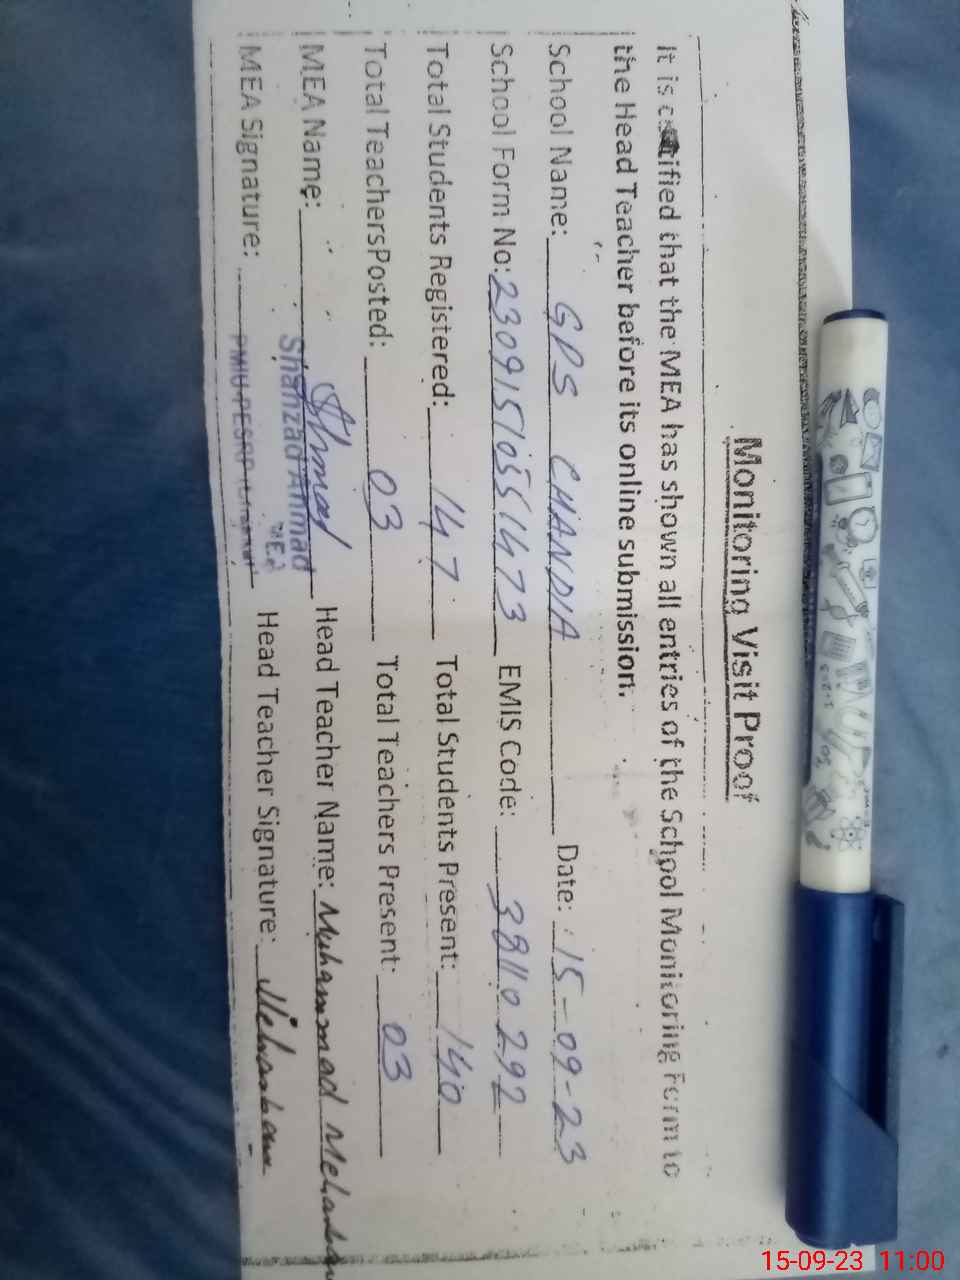 Monitoring Visit Proof
It is certified that the MEA has shown all entries of the School Monitoring Form to
the Head Teacher before its online submission.
School Name: GPS CHANDIA Date: 15-09-23
School Form No: 23091510551473 EMIS Code: 38110292
Total Students Registered: 147 Total Students Present: 140
Total TeachersPosted: 03 Total Teachers Present: 03
MEA Name: Shahzad Ahmad Head Teacher Name: Muhammad
MEA Signature: PMIU-PESRP Head Teacher Signature:
15-09-23 11:00